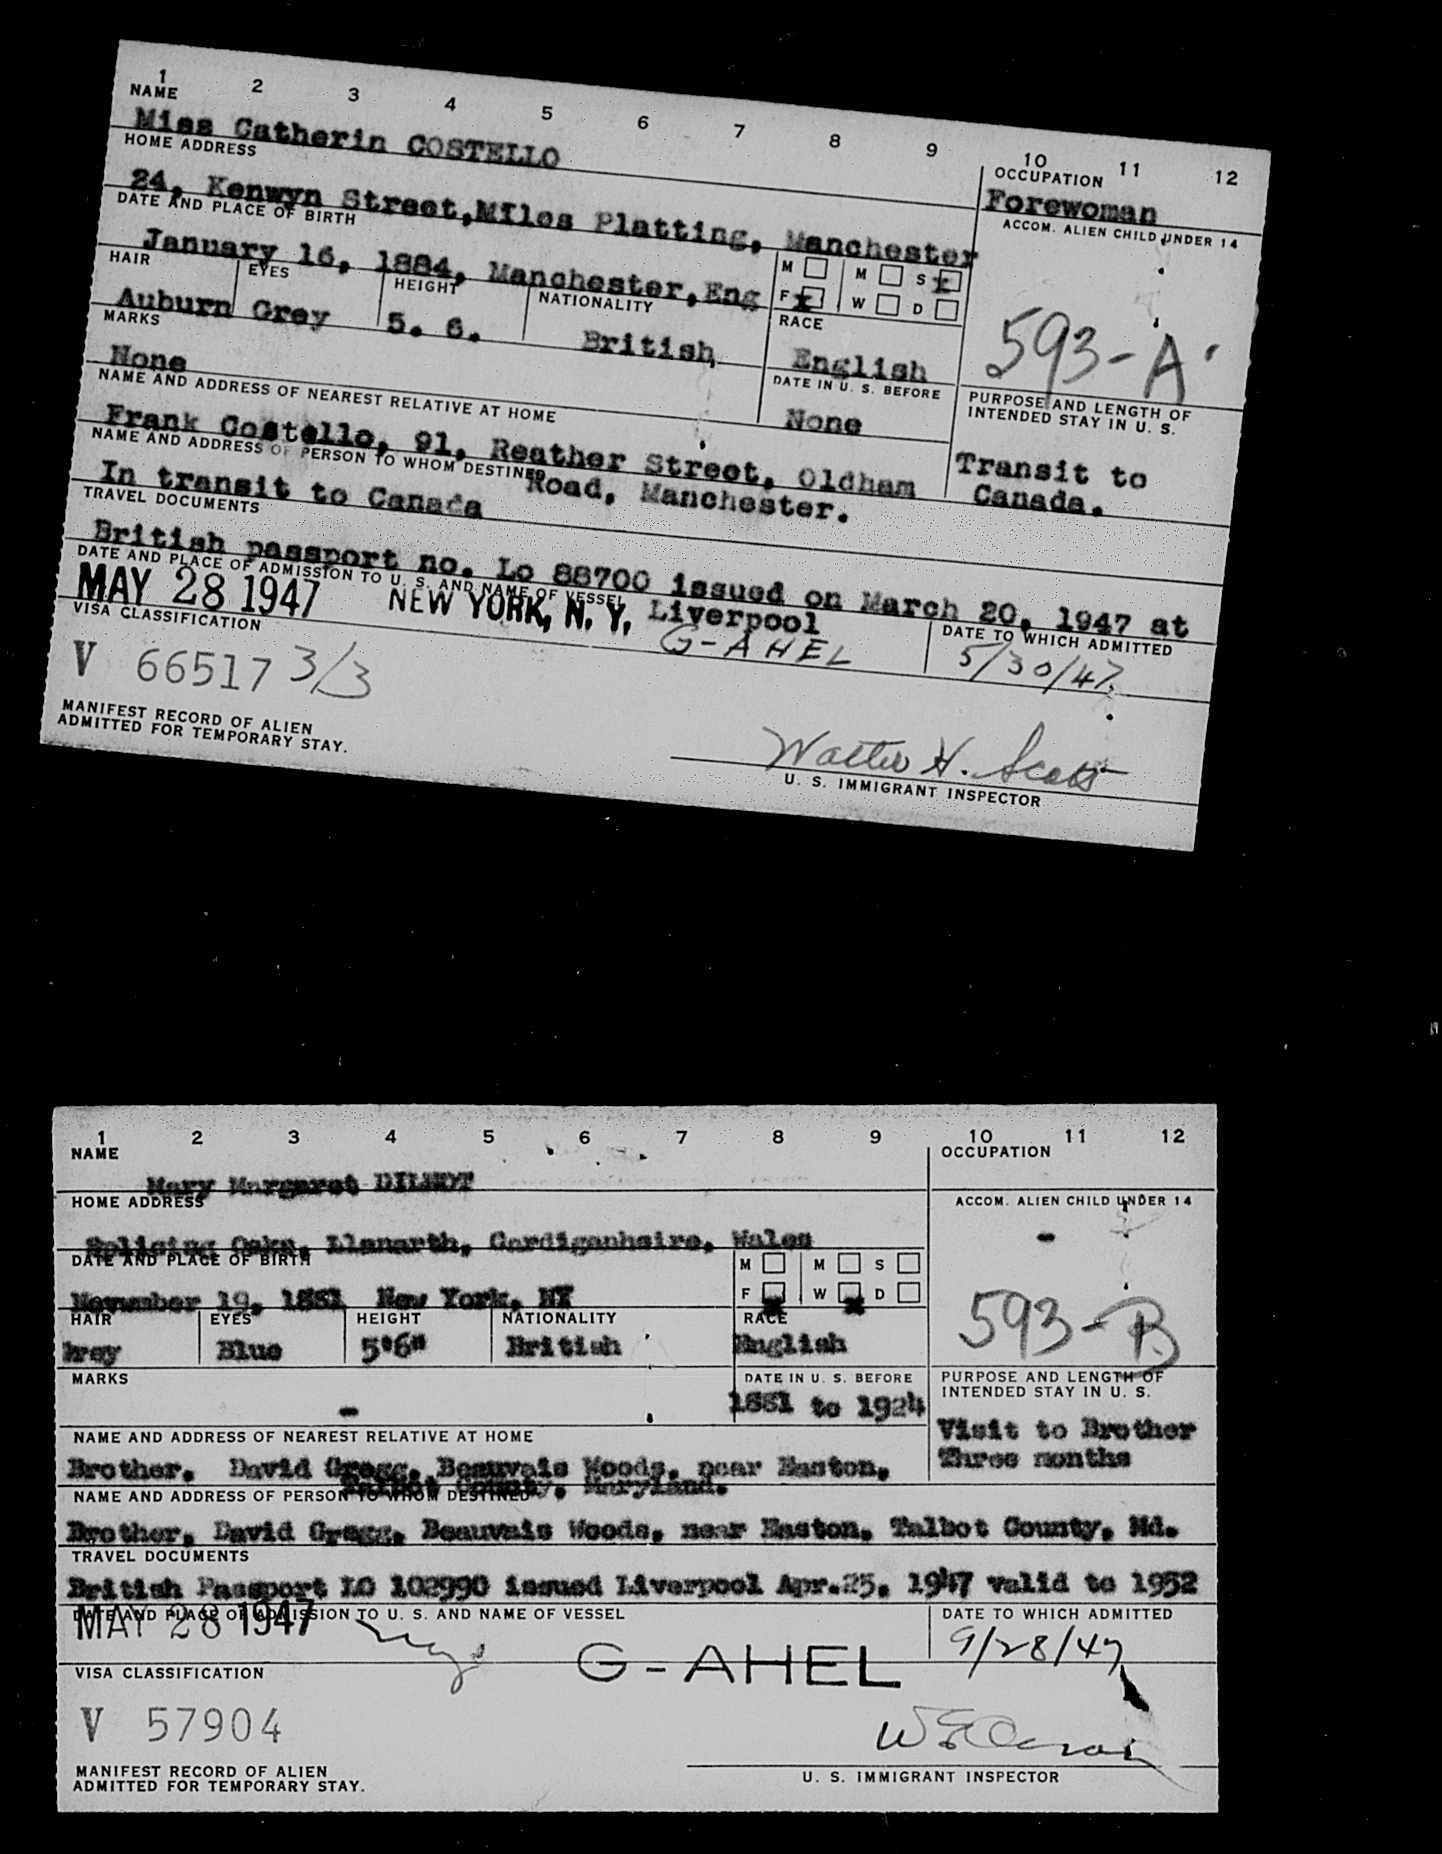 1 2 3 4 5 6 7 8 9 10 11 12
NAME
Miss Catherin COSTELLO
OCCUPATION
Forewoman
HOME ADDRESS
24, Kenwyn Street,MIles Platting, Manchester
ACCOM. ALIEN CHILD UNDER 14
DATE AND PLACE OF BIRTH
January 16, 1884, Manchester,Eng
M M S x
F x W D
593-A
HAIR EYES HEIGHT NATIONALITY RACE
Auburn Grey 5. 6. British English
MARKS
None
DATE IN U. S. BEFORE
None
PURPOSE AND LENGTH OF
INTENDED STAY IN U. S.
Transit to
Canada.
NAME AND ADDRESS OF NEAREST RELATIVE AT HOME
Frank Costello, 91, Reather Street, Oldham
Road, Manchester.
NAME AND ADDRESS OF PERSON TO WHOM DESTINED
In transit to Canada
TRAVEL DOCUMENTS
British passport no. Lo 88700 issued on March 20, 1947 at
Liverpool
DATE AND PLACE OF ADMISSION TO U. S. AND NAME OF VESSEL
MAY 28 1947 NEW YORK, N. Y.
G-AHEL
DATE TO WHICH ADMITTED
5/30/47
VISA CLASSIFICATION
V 66517 3/3
MANIFEST RECORD OF ALIEN
ADMITTED FOR TEMPORARY STAY.
Walter H. Scott
U. S. IMMIGRANT INSPECTOR
1 2 3 4 5 6 7 8 9 10 11 12
NAME
Mary Margaret
OCCUPATION
HOME ADDRESS
Llanarth, Cardiganhsire, Wales
ACCOM. ALIEN CHILD UNDER 14
-
DATE AND PLACE OF BIRTH
19, 1881 New York, NY
M M S
F x W x D
593-B
HAIR EYES HEIGHT NATIONALITY RACE
Grey Blue 5'6" British English
MARKS
-
DATE IN U. S. BEFORE
1881 to 1924
PURPOSE AND LENGTH OF
INTENDED STAY IN U. S.
Visit to Brother
Three months
NAME AND ADDRESS OF NEAREST RELATIVE AT HOME
Brother. David Gregg, Beauvais Woods, near Easton,
Talbot County, Maryland.
NAME AND ADDRESS OF PERSON TO WHOM DESTINED
Brother, David Gregg, Beauvais Woods, near Easton, Talbot County, Md.
TRAVEL DOCUMENTS
British Passport LO 102990 issued Liverpool Apr.25, 1947 valid to 1952
DATE AND PLACE OF ADMISSION TO U. S. AND NAME OF VESSEL
MAY 28 1947
G-AHEL
DATE TO WHICH ADMITTED
9/28/47
VISA CLASSIFICATION
V 57904
MANIFEST RECORD OF ALIEN
ADMITTED FOR TEMPORARY STAY.
U. S. IMMIGRANT INSPECTOR